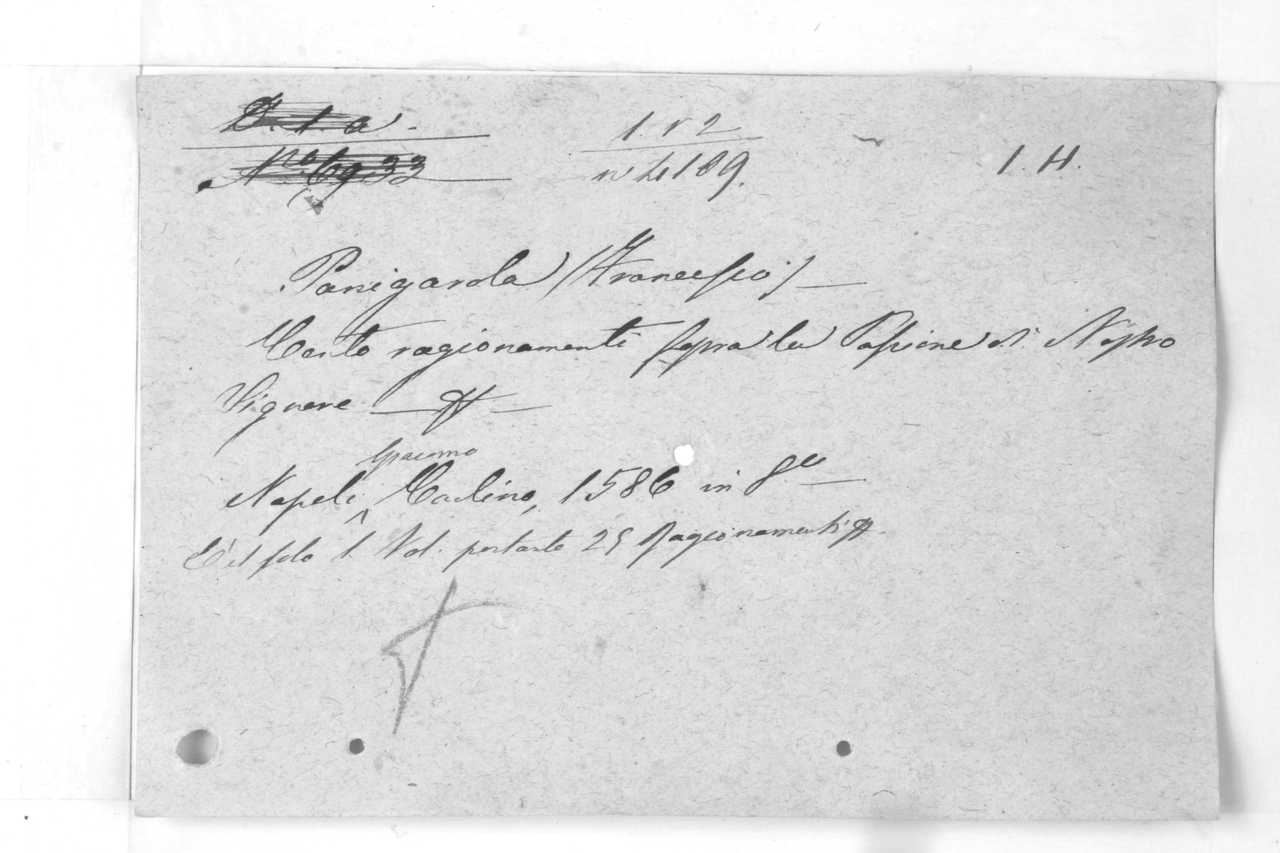 D. 1. a.
No 69.33
1. r 2
nº 4189.
1. H.
Panigarola (Francesco)
Cento ragionamenti sopra la Passione di Nostro
Signore
Giacomo
Napoli Carlino, 1586 in 8º
È il solo 1. Vol. portante 25 Ragionamenti